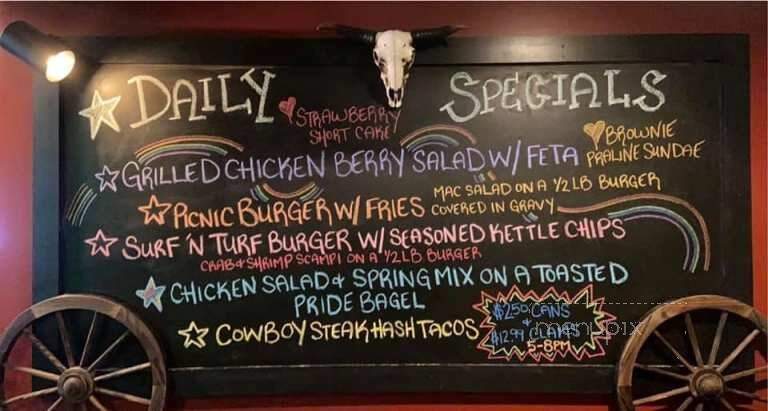 DAILY SPECIALS
STRAWBERRY
SHORT CAKE
BROWNIE
PRALINE SUNDAE
GRILLED CHICKEN BERRY SALAD W/ FETA
PICNIC BURGER W/ FRIES
MAC SALAD ON A 1/2 LB BURGER
COVERED IN GRAVY
SURF 'N TURF BURGER W/ SEASONED KETTLE CHIPS
CRAB & SHRIMP SCAMPI ON A 1/2 LB BURGER
CHICKEN SALAD & SPRING MIX ON A TOASTED
PRIDE BAGEL
COWBOY STEAK HASH TACOS
$2.50 CANS
&
$12.99 CLAMS
5-8PM
menupix